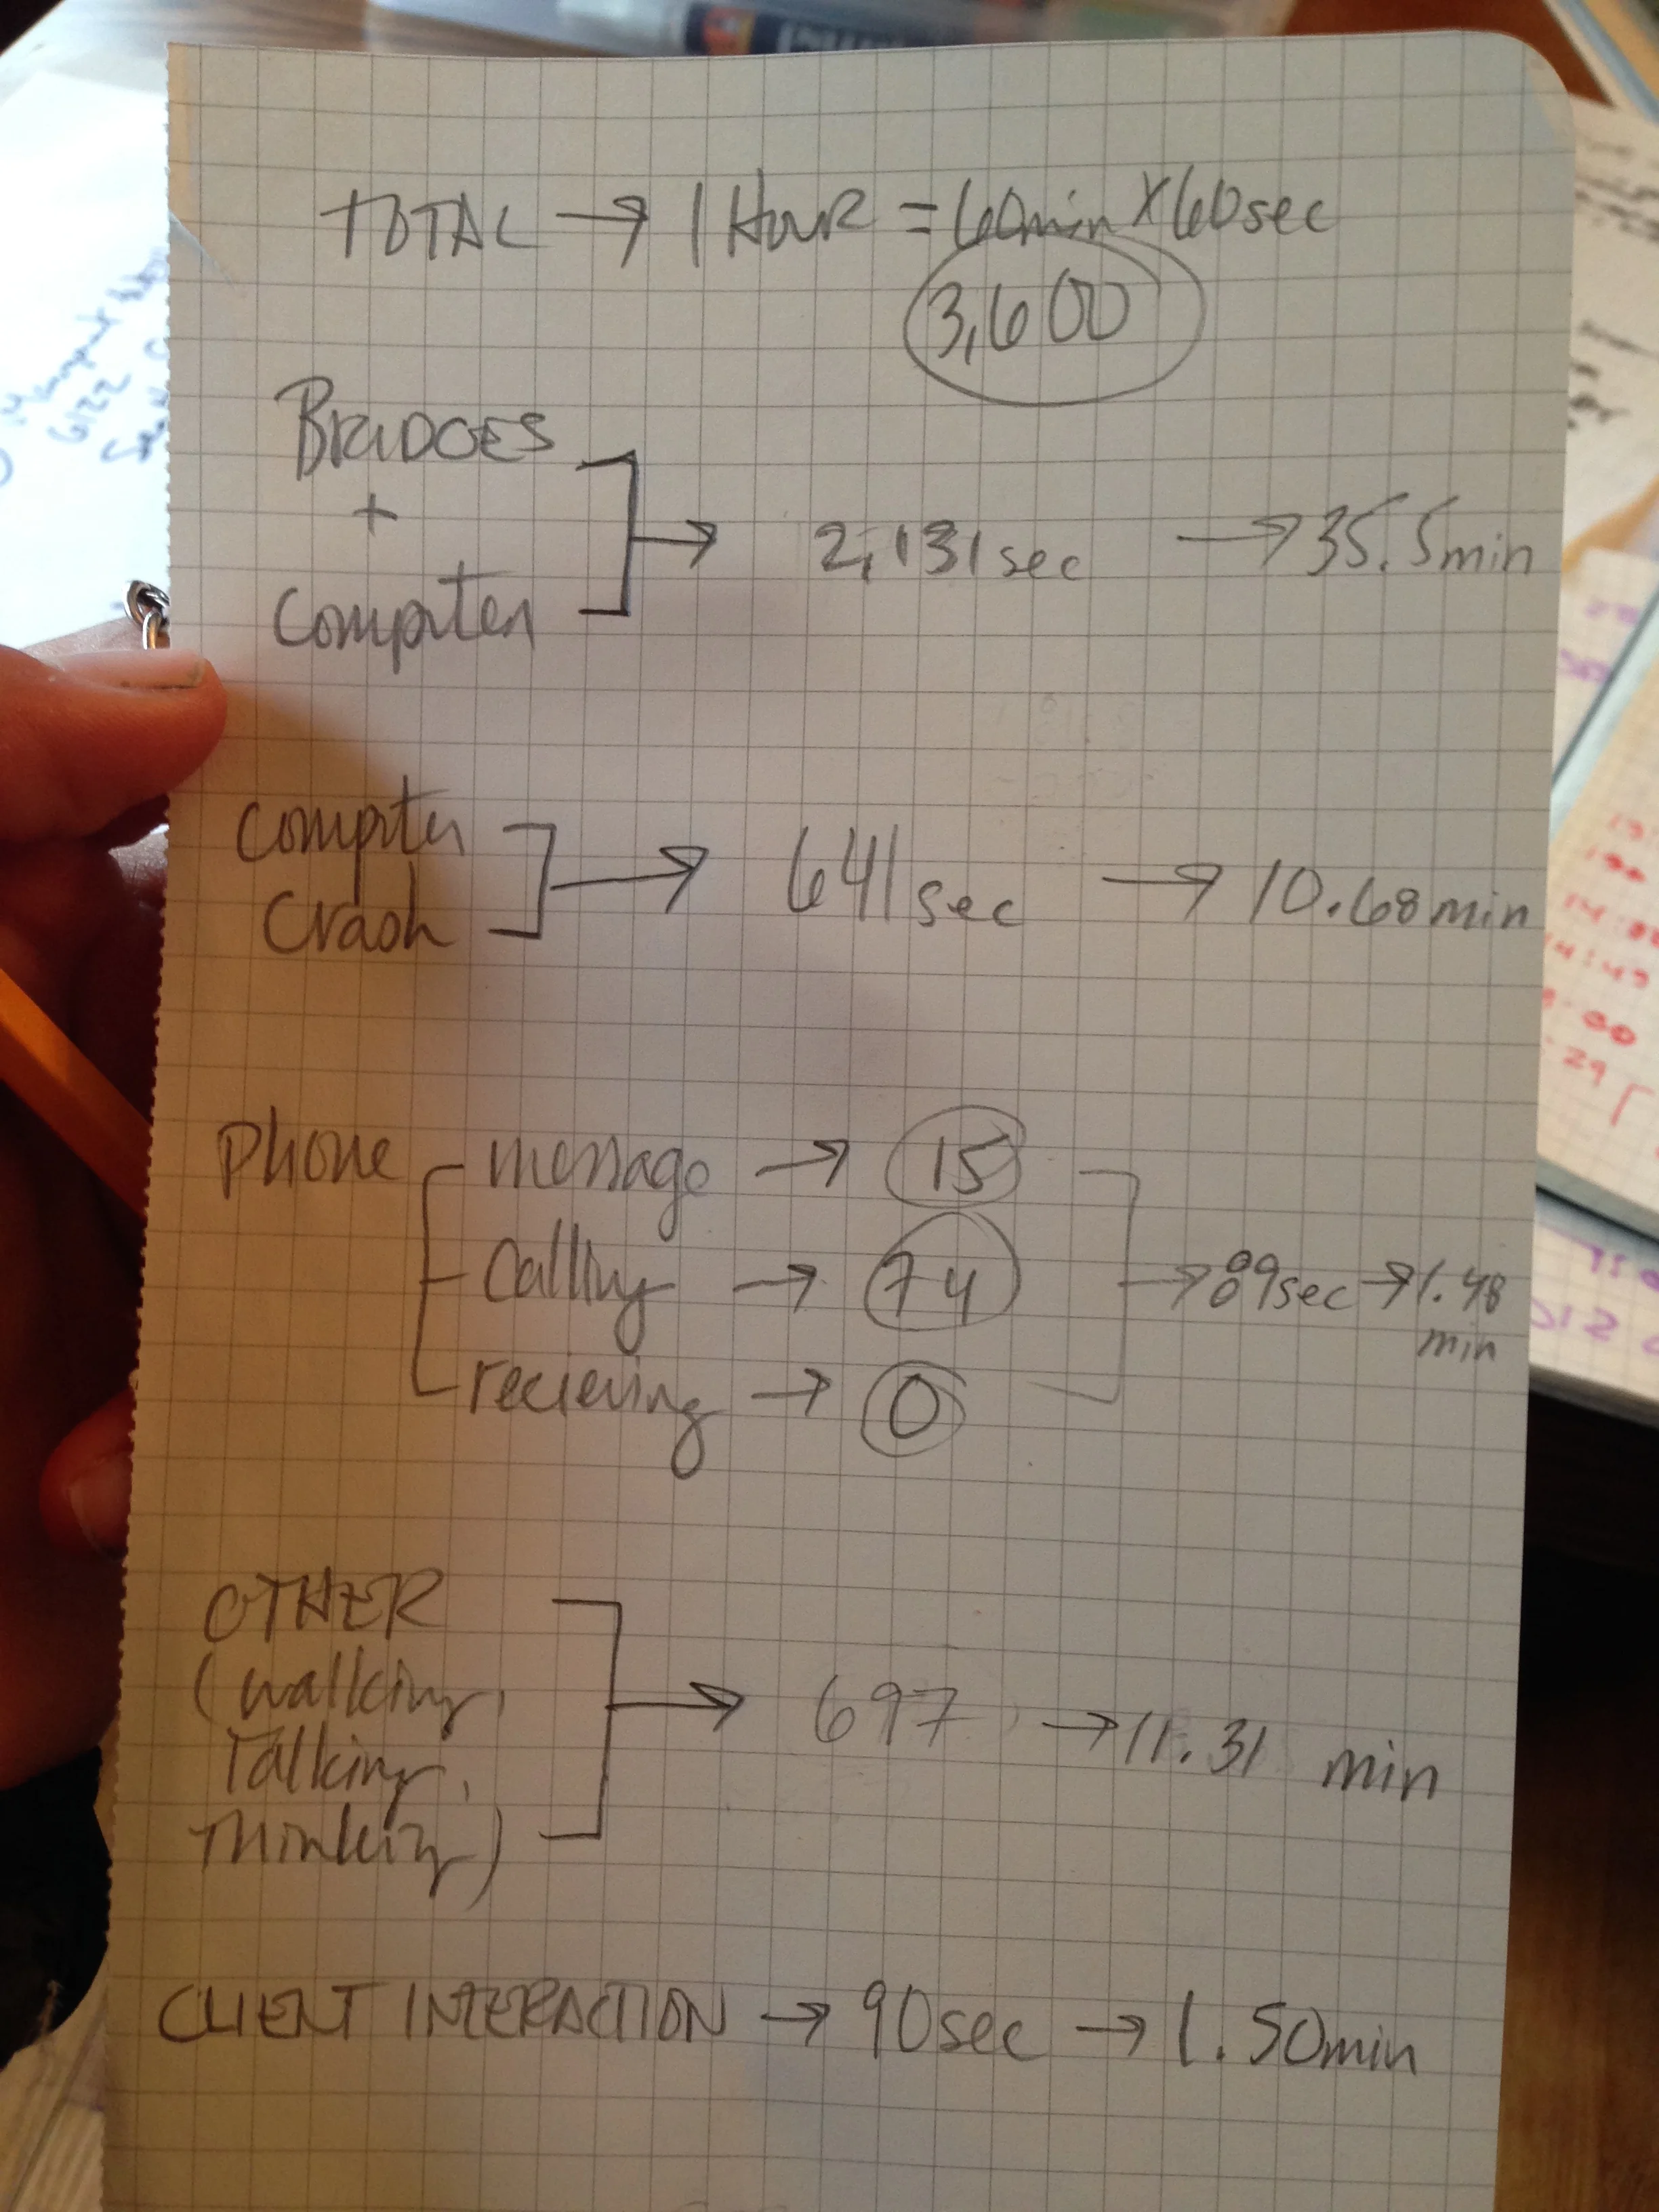 TOTAL → 1 HOUR = 60min x 60sec
3,600
BRIDGES
+
Computer
→ 2,131sec → 35.5min
Computer
Crash
→ 641sec → 10.68min
Phone
message → 15
Calling → 74
recieving → 0
→ 89sec → 1.48
min
OTHER
(walking,
Talking,
Thinking)
→ 697 → 11.31 min
CLIENT INTERACTION → 90sec → 1.50min